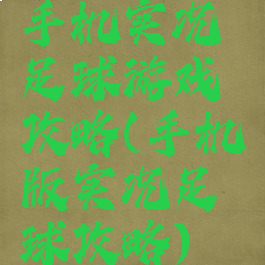 手机实况
足球游戏
攻略(手机
版实况足
球攻略)